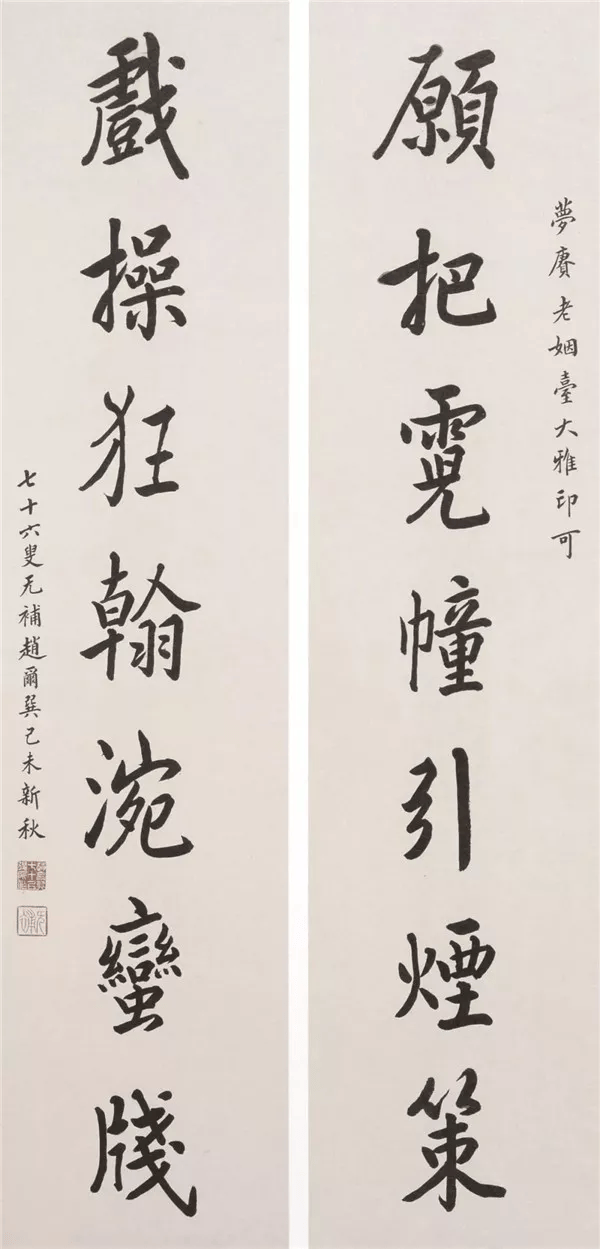 夢賡老姻臺大雅印可
願把霓幢引煙策
戲操狂翰涴蠻牋
七十六叟无補趙爾巽己未新秋